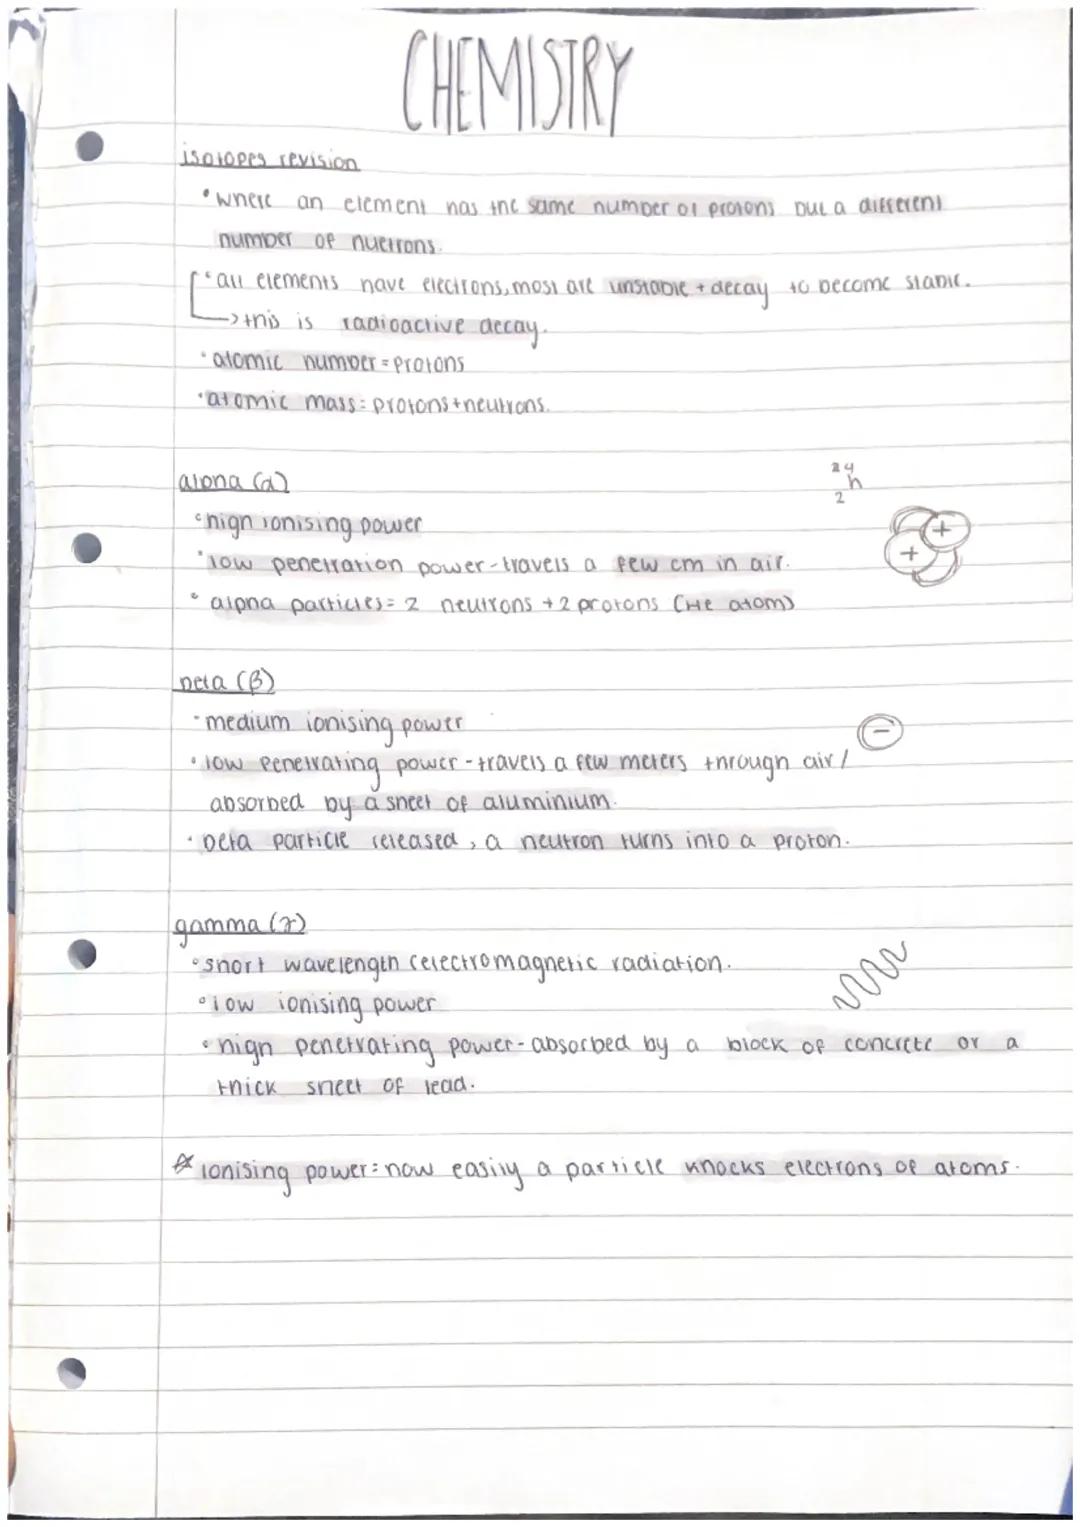 CHEMISTRY
isotopes revision
• where an element has the same number of protons but a different
number of nuetrons.
• all elements have electrons, most are unstable + decay to become stable.
-> this is radioactive decay.
• atomic number = protons
• atomic mass = protons + neutrons.
alpha (α)
24
h
2
• high ionising power
+
• low penetration power - travels a few cm in air.
+
• alpna particles = 2 neutrons + 2 protons (He atom)
beta (β)
• medium ionising power
−
• low penetrating power - travels a few meters through air /
absorbed by a sheet of aluminium.
• beta particle released, a neutron turns into a proton.
gamma (γ)
• short wavelength (electromagnetic radiation.
• low ionising power
• high penetrating power - absorbed by a block of concrete or a
thick sheet of lead.
☆ ionising power = how easily a particle knocks electrons of atoms.